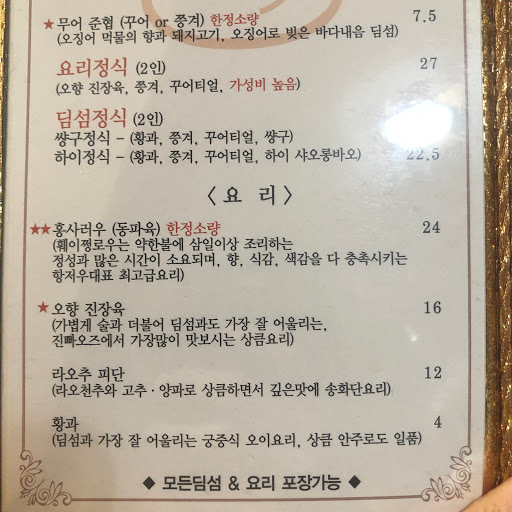 ★무어 준협 (꾸어 or 쫑겨) 한정소량 7.5
(오징어 먹물의 향과 돼지고기, 오징어로 빚은 바다내음 딤섬)
요리정식 (2인) 27
(오향 진장육, 쫑겨, 꾸어티얼, 가성비 높음)
딤섬정식 (2인)
썅구정식 – (황과, 쫑겨, 꾸어티얼, 썅구)
하이정식 – (황과, 쫑겨, 꾸어티얼, 하이 샤오롱바오) 22.5
〈 요 리 〉
★★홍사러우 (동파육) 한정소량 24
(훼이쩡로우는 약한불에 삼일이상 조리하는
정성과 많은 시간이 소요되며, 향, 식감, 색감을 다 충족시키는
항저우대표 최고급요리)
★오향 진장육 16
(가볍게 술과 더불어 딤섬과도 가장 잘 어울리는,
진빠오즈에서 가장많이 맛보시는 상큼요리)
라오추 피단 12
(라오천추와 고추 · 양파로 상큼하면서 깊은맛에 송화단요리)
황과 4
(딤섬과 가장 잘 어울리는 궁중식 오이요리, 상큼 안주로도 일품)
◆ 모든딤섬 & 요리 포장가능 ◆